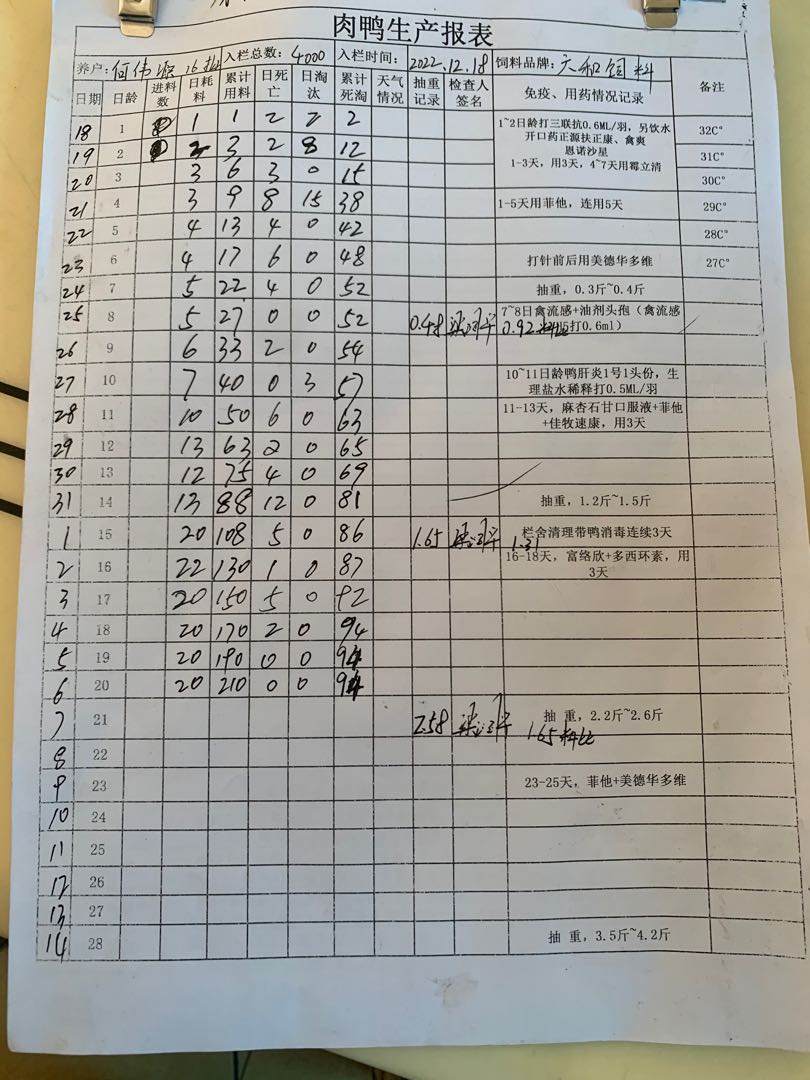 肉鸭生产报表
养户: 何伟 16批 入栏总数: 4000 入栏时间: 2022.12.18 饲料品牌: 六和饲料
日期 日龄 进料数 日耗料 累计用料 日死亡 日淘汰 累计死淘 天气情况 抽重记录 检查人签名 免疫、用药情况记录 备注
18 1 1 1 2 2 2 1~2日龄打三联抗0.6ML/羽，另饮水 32C°
开口药正源扶正康、禽爽
恩诺沙星
19 2 2 3 2 8 12 1-3天，用3天，4~7天用霉立清 31C°
20 3 3 6 3 0 15 30C°
21 4 3 9 8 15 38 1-5天用菲他，连用5天 29C°
22 5 4 13 4 0 42 28C°
23 6 4 17 6 0 48 打针前后用美德华多维 27C°
24 7 5 22 4 0 52 抽重，0.3斤~0.4斤
25 8 5 27 0 0 52 0.48 7~8日禽流感+油剂头孢（禽流感
0.92料比 5打0.6ml）
26 9 6 33 2 0 54
27 10 7 40 0 3 57 10~11日龄鸭肝炎1号1头份，生
理盐水稀释打0.5ML/羽
28 11 10 50 6 0 63 11-13天，麻杏石甘口服液+菲他
+佳牧速康，用3天
29 12 13 63 2 0 65
30 13 12 75 4 0 69
31 14 13 88 12 0 81 抽重，1.2斤~1.5斤
1 15 20 108 5 0 86 1.65 栏舍清理带鸭消毒连续3天
1.31
2 16 22 130 1 0 87 16-18天，富络欣+多西环素，用
3天
3 17 20 150 5 0 92
4 18 20 170 2 0 94
5 19 20 190 0 0 94
6 20 20 210 0 0 94
7 21 2.58 抽 重，2.2斤~2.6斤
1.65料比
8 22
9 23 23-25天，菲他+美德华多维
10 24
11 25
12 26
13 27
14 28 抽 重，3.5斤~4.2斤